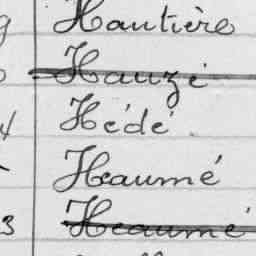 Hautière
Hauzé
4 Hédé
Heaumé
3 Heaumé